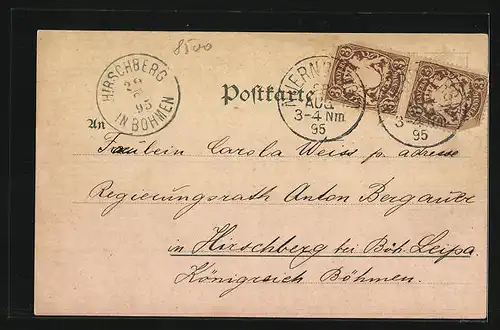 8500
HIRSCHBERG
29
8
95
IN BÖHMEN
Postkarte
AUG
3-4 Nm
95
3-4
95
3
3
3
An
Fräulein Carola Weiss p. adresse
Regierungsrath Anton Bergauer
in Hirschberg bei Böh. Leipa.
Königreich Böhmen.